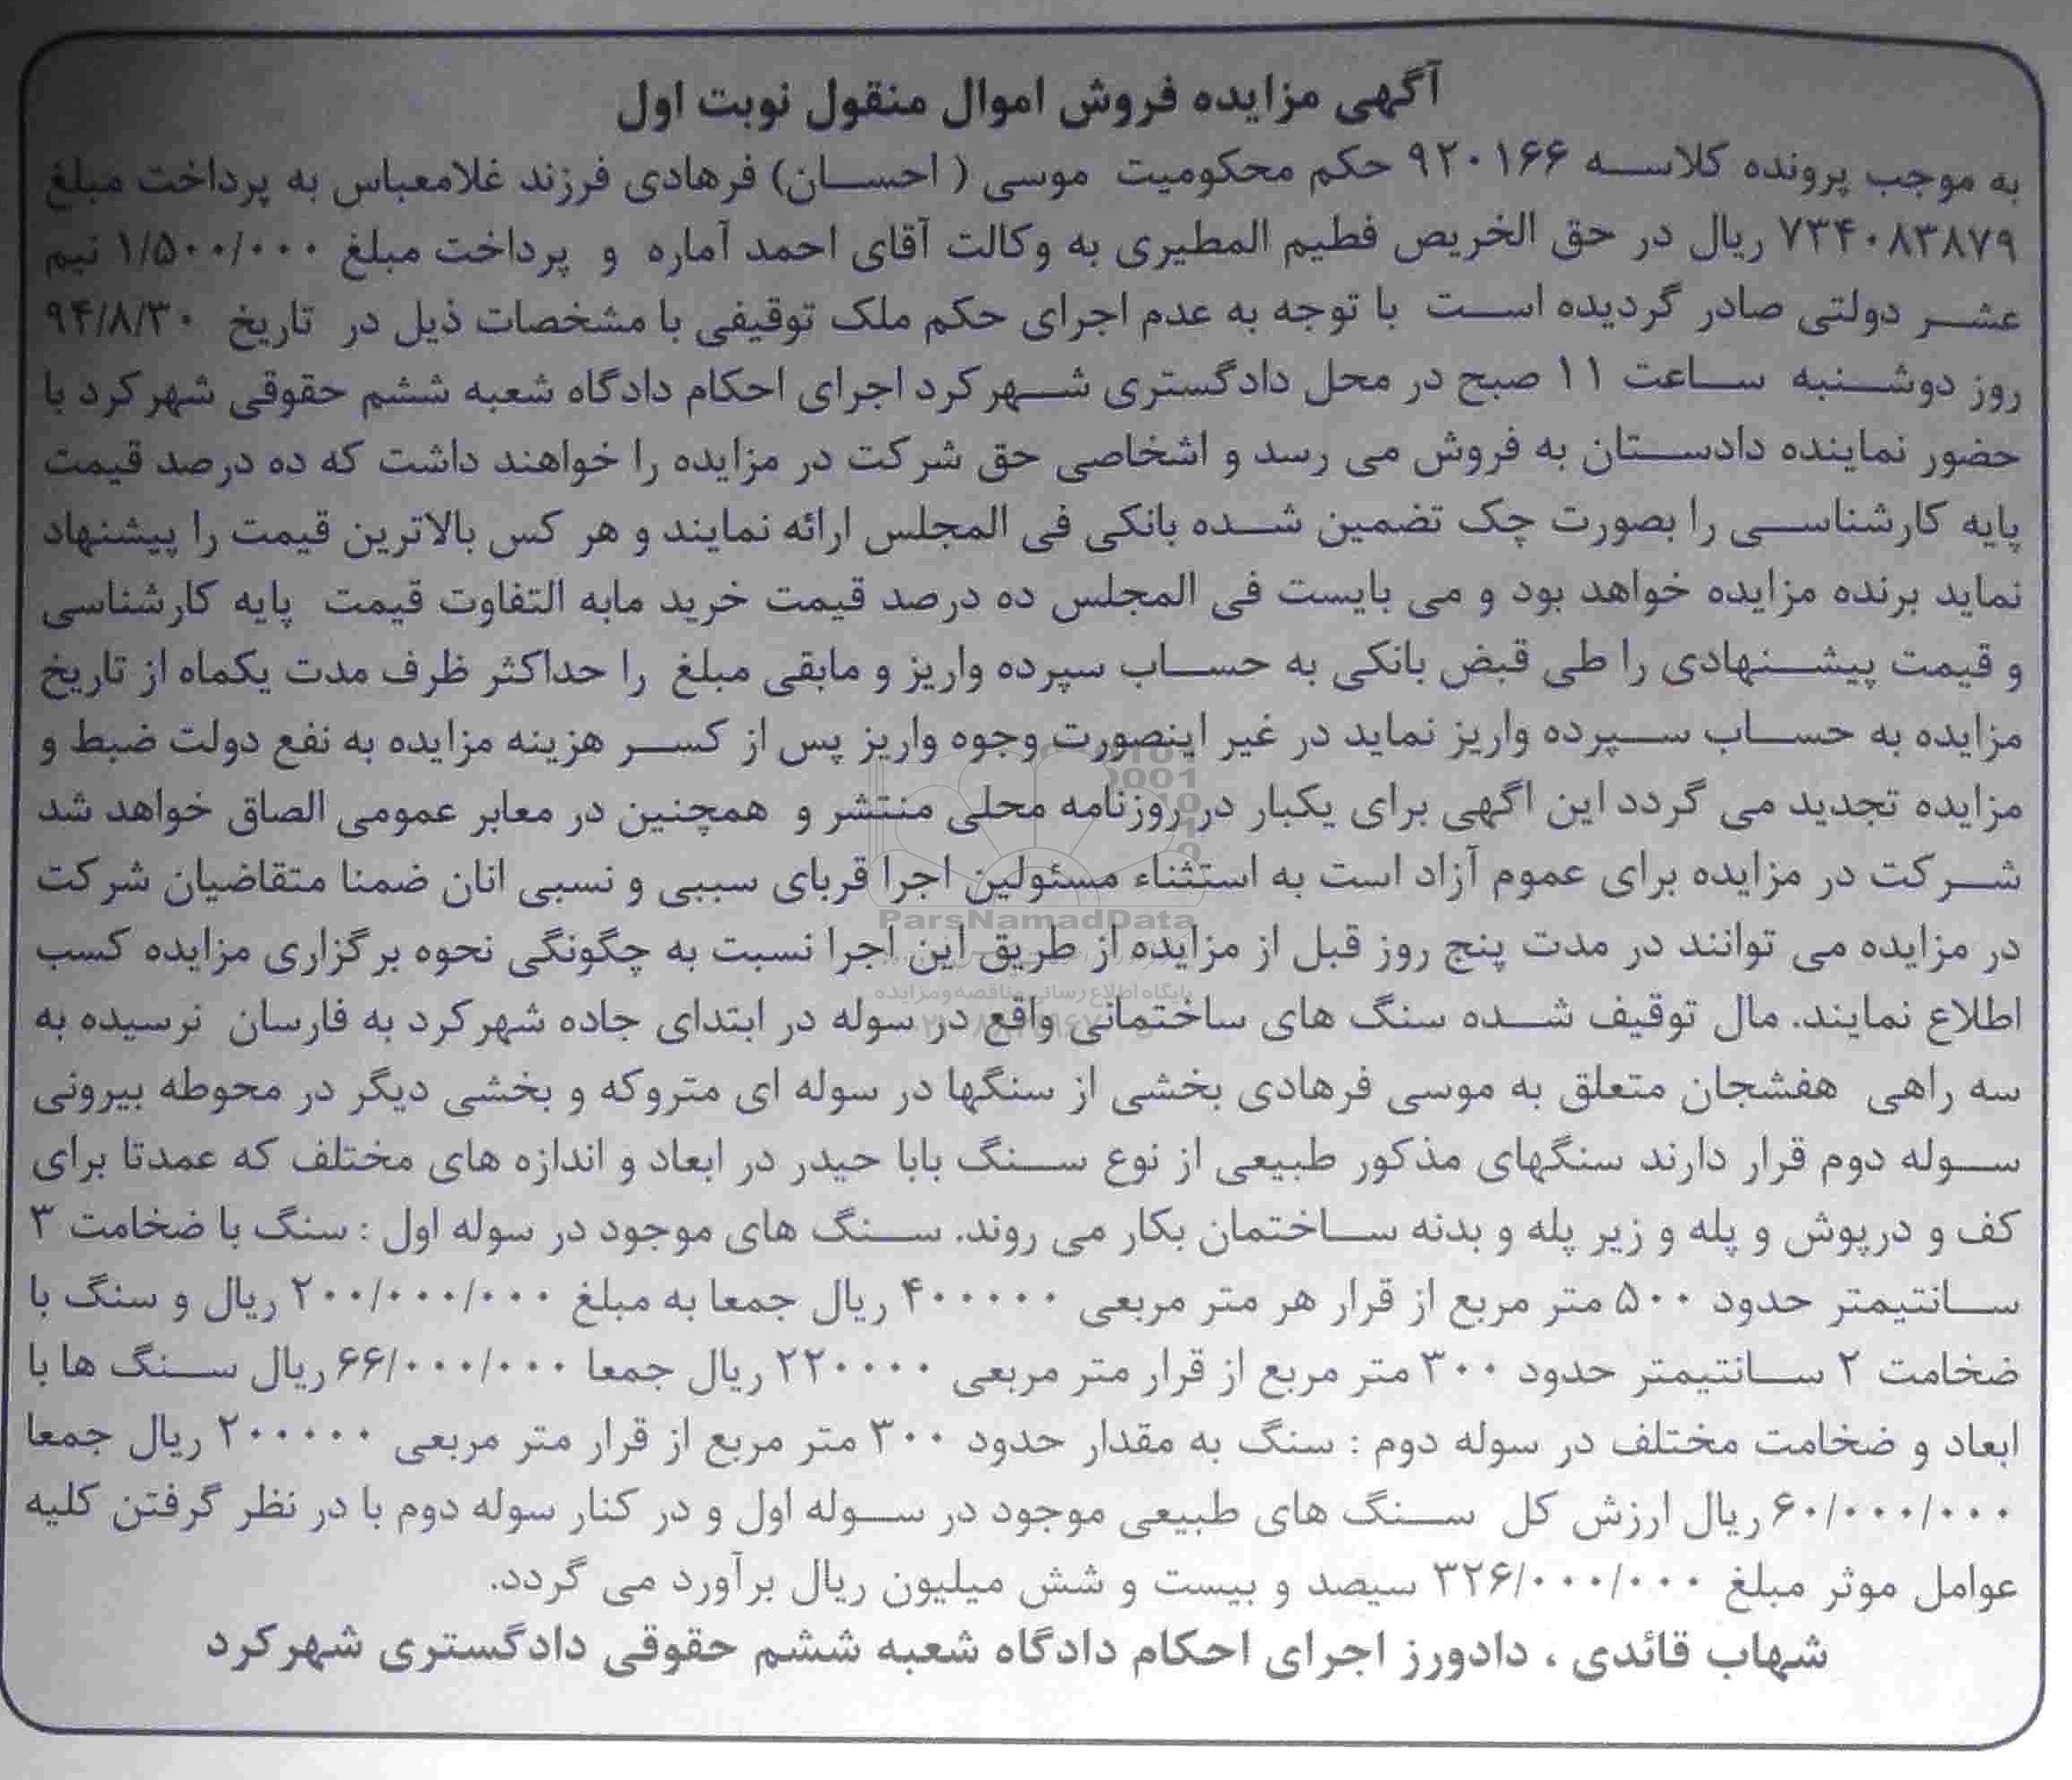 آگهی مزایده فروش اموال منقول نوبت اول
به موجب پرونده کلاسه ۹۲۰۱۶۶ حکم محکومیت موسی (احسان) فرهادی فرزند غلامعباس به پرداخت مبلغ
۷۳۴۰۸۳۸۷۹ ریال در حق الخریص فطیم المطیری به وکالت آقای احمد آماره و پرداخت مبلغ ۱/۵۰۰/۰۰۰ نیم
عشر دولتی صادر گردیده است با توجه به عدم اجرای حکم ملک توقیفی با مشخصات ذیل در تاریخ ۹۴/۸/۳۰
روز دوشنبه ساعت ۱۱ صبح در محل دادگستری شهرکرد اجرای احکام دادگاه شعبه ششم حقوقی شهرکرد با
حضور نماینده دادستان به فروش می رسد و اشخاصی حق شرکت در مزایده را خواهند داشت که ده درصد قیمت
پایه کارشناسی را بصورت چک تضمین شده بانکی فی المجلس ارائه نمایند و هر کس بالاترین قیمت را پیشنهاد
نماید برنده مزایده خواهد بود و می بایست فی المجلس ده درصد قیمت خرید مابه التفاوت قیمت پایه کارشناسی
و قیمت پیشنهادی را طی قبض بانکی به حساب سپرده واریز و مابقی مبلغ را حداکثر ظرف مدت یکماه از تاریخ
مزایده به حساب سپرده واریز نماید در غیر اینصورت وجوه واریز پس از کسر هزینه مزایده به نفع دولت ضبط و
مزایده تجدید می گردد این اگهی برای یکبار در روزنامه محلی منتشر و همچنین در معابر عمومی الصاق خواهد شد
شرکت در مزایده برای عموم آزاد است به استثناء مسئولین اجرا قربای سببی و نسبی انان ضمنا متقاضیان شرکت
ParsNamadData
در مزایده می توانند در مدت پنج روز قبل از مزایده از طریق این اجرا نسبت به چگونگی نحوه برگزاری مزایده کسب
پایگاه اطلاع رسانی مناقصه و مزایده
اطلاع نمایند. مال توقیف شده سنگ های ساختمانی واقع در سوله در ابتدای جاده شهرکرد به فارسان نرسیده به
سه راهی هفشجان متعلق به موسی فرهادی بخشی از سنگها در سوله ای متروکه و بخشی دیگر در محوطه بیرونی
سوله دوم قرار دارند سنگهای مذکور طبیعی از نوع سنگ بابا حیدر در ابعاد و اندازه های مختلف که عمدتا برای
کف و درپوش و پله و زیر پله و بدنه ساختمان بکار می روند. سنگ های موجود در سوله اول : سنگ با ضخامت ۳
سانتیمتر حدود ۵۰۰ متر مربع از قرار هر متر مربعی ۴۰۰۰۰۰ ریال جمعا به مبلغ ۲۰۰/۰۰۰/۰۰۰ ریال و سنگ با
ضخامت ۲ سانتیمتر حدود ۳۰۰ متر مربع از قرار متر مربعی ۲۲۰۰۰۰ ریال جمعا ۶۶/۰۰۰/۰۰۰ ریال سنگ ها با
ابعاد و ضخامت مختلف در سوله دوم : سنگ به مقدار حدود ۳۰۰ متر مربع از قرار متر مربعی ۲۰۰۰۰۰ ریال جمعا
۶۰/۰۰۰/۰۰۰ ریال ارزش کل سنگ های طبیعی موجود در سوله اول و در کنار سوله دوم با در نظر گرفتن کلیه
عوامل موثر مبلغ ۳۲۶/۰۰۰/۰۰۰ سیصد و بیست و شش میلیون ریال برآورد می گردد.
شهاب قائدی ، دادورز اجرای احکام دادگاه شعبه ششم حقوقی دادگستری شهرکرد